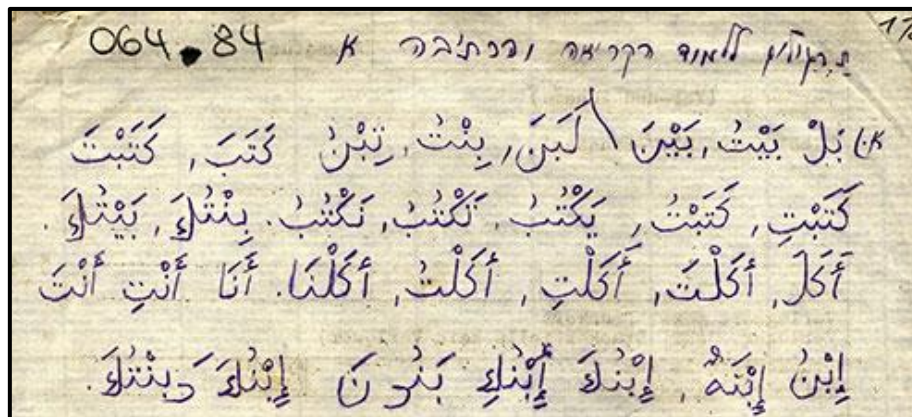 064.84 תרגולון ללמוד הקריאה והכתיבה א
א) بَلْ بَيْتُ, بَيْنَ \ لَبَنَ, بِنْتُ, تِبْنُ كَتَبَ, كَتَبْتَ
كَتَبْتِ, كَتَبْتُ, يَكْتُبُ. تَكْتُبُ, نَكْتُبُ. بِنْتُكَ, بَيْتُكَ.
أَكَلَ, أَكَلْتَ, أَكَلْتِ, أَكَلْتُ, أَكَلْنَا. أَنَا أَنْتِ أَنْتَ
إِبْنُ إِبْنَةٌ, إِبْنُكَ إِبْنُكِ بَنُونَ إِبْنُكَ وَبِنْتُكَ.